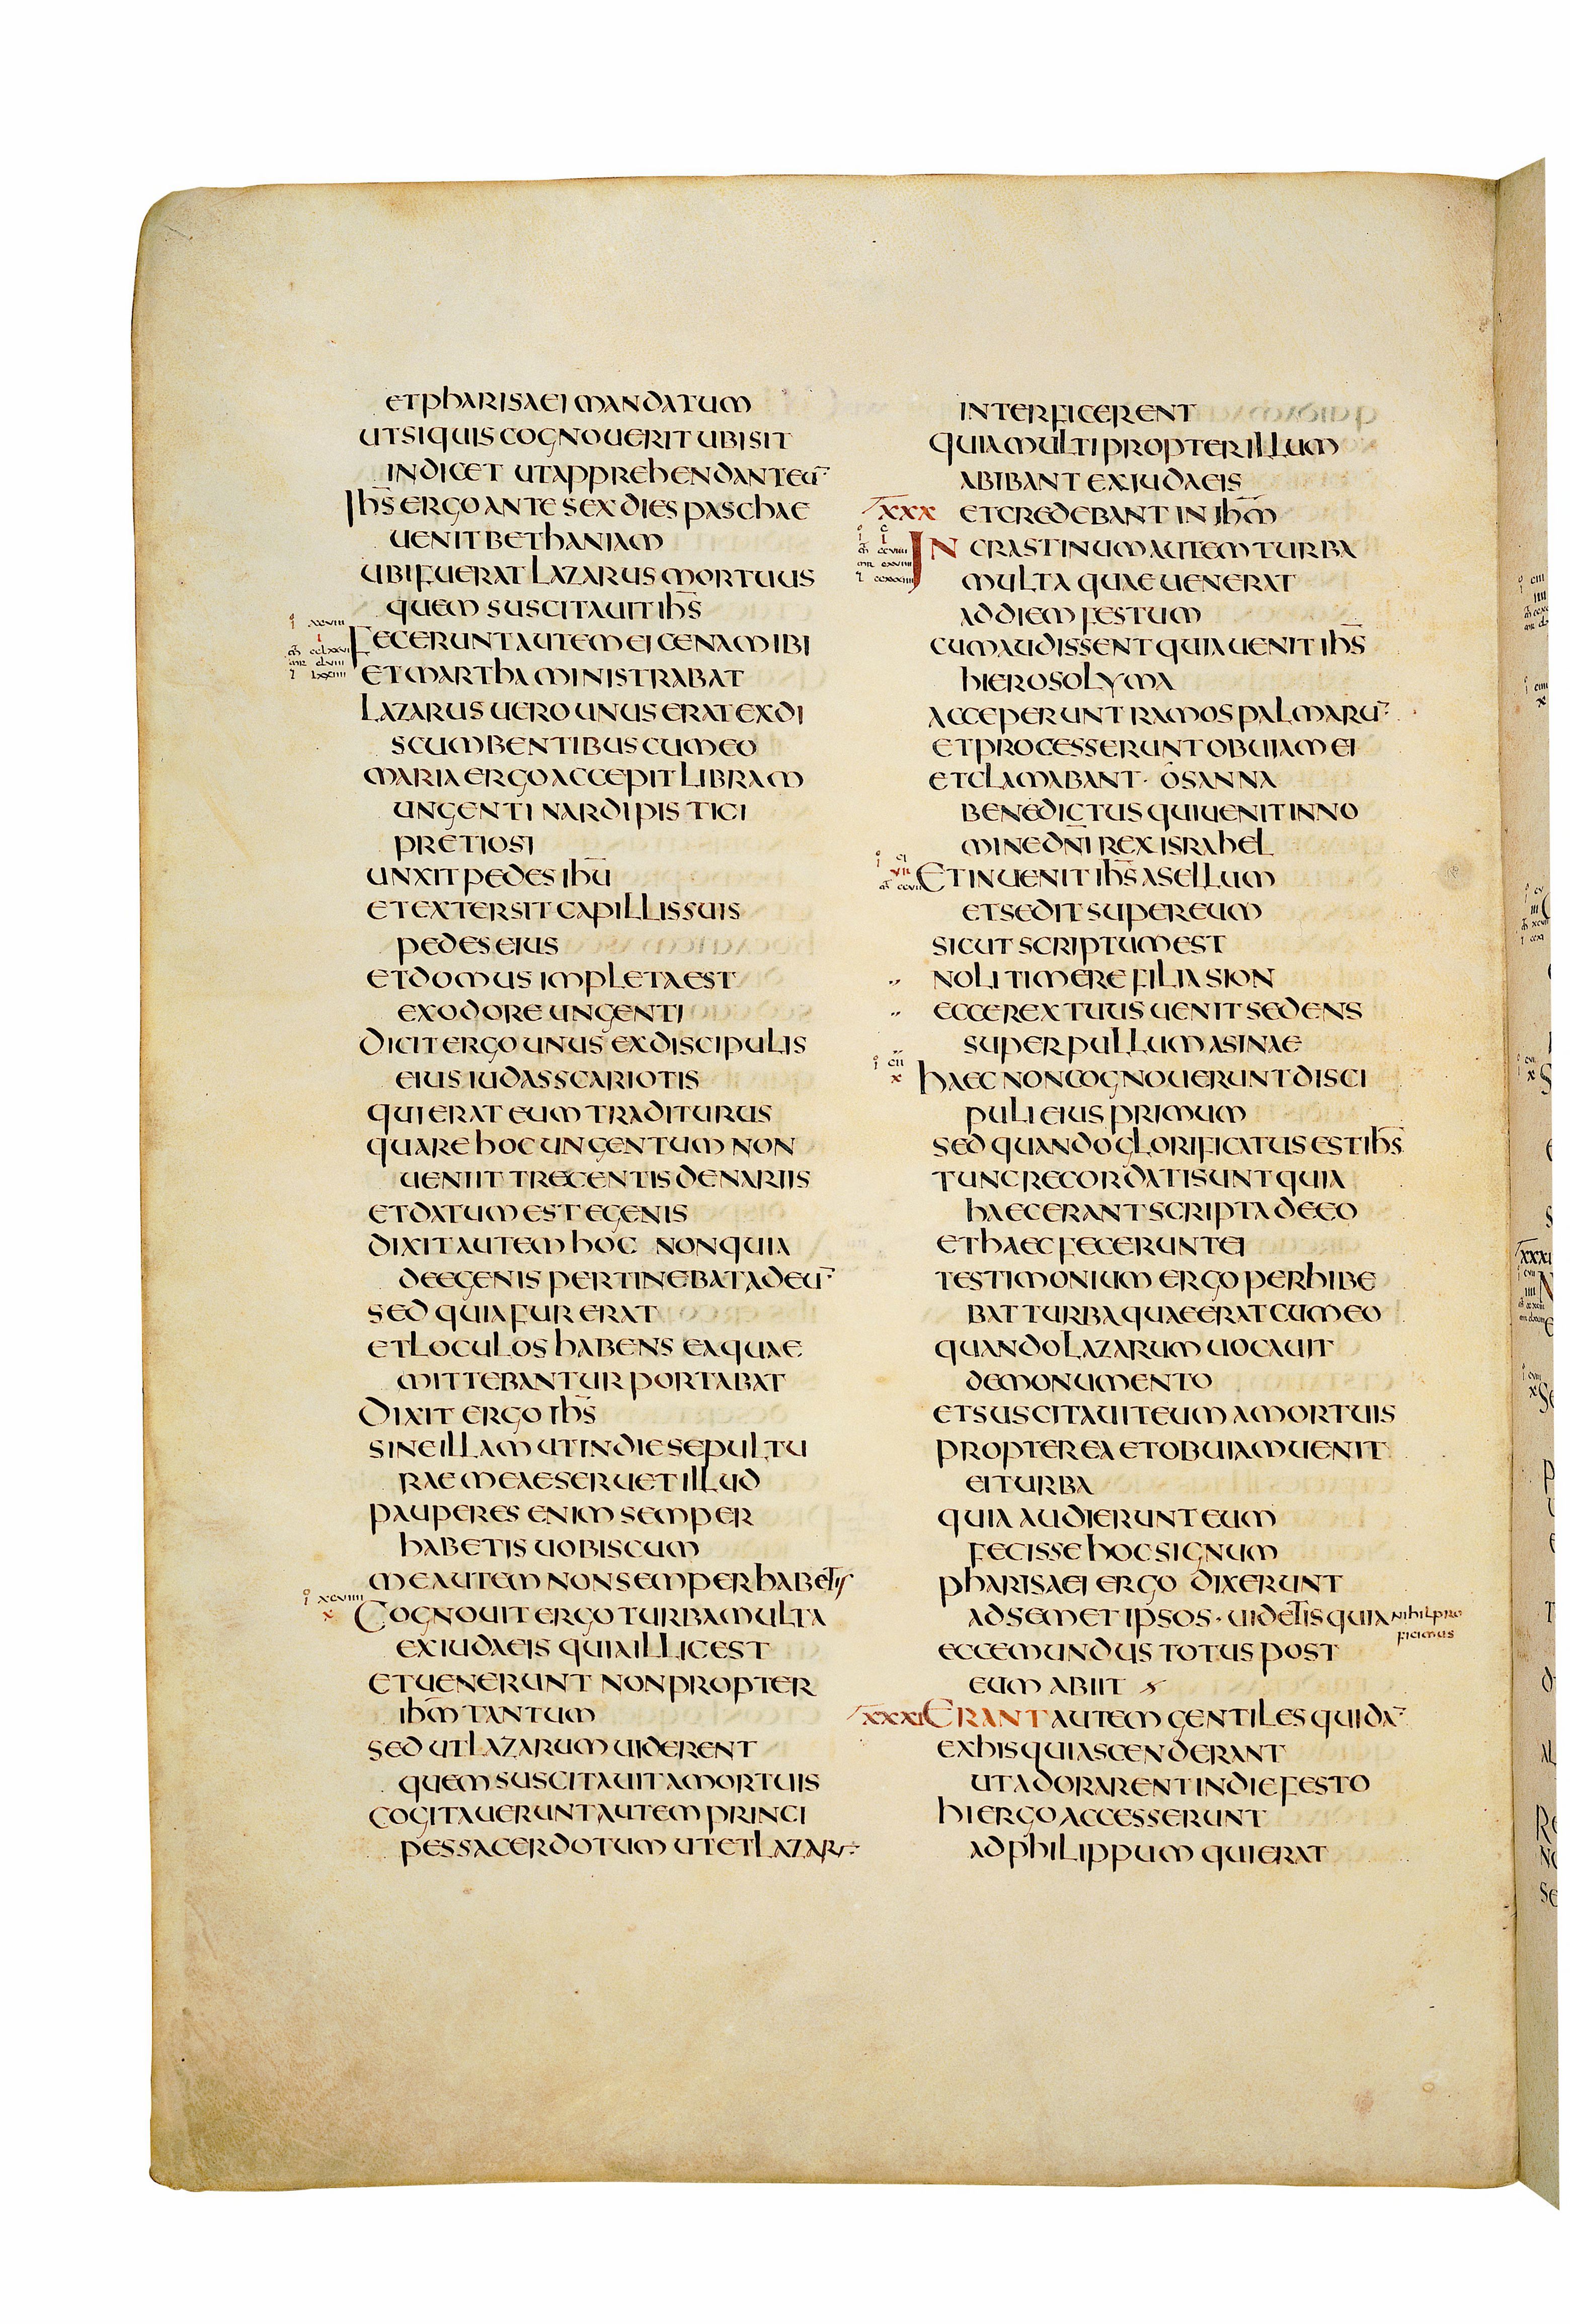 et pharisaei mandatum
ut si quis cognouerit ubi sit
indicet ut apprehendant eū
Ihs̄ ergo ante sex dies paschae
uenit bethaniam
ubi fuerat lazarus mortuus
quem suscitauit ihs̄
Fecerunt autem ei cenam ibi
et martha ministrabat
lazarus uero unus erat ex di
scumbentibus cum eo
maria ergo accepit libram
ungenti nardi pistici
pretiosi
unxit pedes ihū
et extersit capillis suis
pedes eius
et domus impleta est
ex odore ungenti
Dicit ergo unus ex discipulis
eius iudas scariotis
qui erat eum traditurus
quare hoc ungentum non
ueniit trecentis denariis
et datum est egenis
dixit autem hoc non quia
de egenis pertinebat ad eū
sed quia fur erat
et loculos habens ea quae
mittebantur portabat
Dixit ergo ihs̄
sine illam ut in die sepultu
rae meae seruet illud
pauperes enim semper
habetis uobiscum
me autem non semper habetis
xcviiii
x
Cognouit ergo turba multa
ex iudaeis quia illic est
et uenerunt non propter
ihm̄ tantum
sed ut lazarum uiderent
quem suscitauit a mortuis
cogitauerunt autem princi
pes sacerdotum ut et lazarū
interficerent
quia multi propter illum
abibant ex iudaeis
xxx et credebant in ihm̄
In crastinum autem turba
multa quae uenerat
ad diem festum
cum audissent quia uenit ihs̄
hierosolyma
acceperunt ramos palmarū
et processerunt obuiam ei
et clamabant · osanna
benedictus qui uenit in no
mine dnī rex israhel
Et inuenit ihs̄ asellum
et sedit super eum
sicut scriptum est
noli timere filia sion
ecce rex tuus uenit sedens
super pullum asinae
cii
x
haec non cognouerunt disci
puli eius primum
sed quando glorificatus est ihs̄
tunc recordati sunt quia
haec erant scripta de eo
et haec fecerunt ei
testimonium ergo perhibe
bat turba quae erat cum eo
quando lazarum uocauit
de monumento
et suscitauit eum a mortuis
propterea et obuiam uenit
ei turba
quia audierunt eum
fecisse hoc signum
pharisaei ergo dixerunt
ad semet ipsos · uidetis quia nihil pro
ficimus
ecce mundus totus post
eum abiit
xxxi Erant autem gentiles quidā
ex his qui ascenderant
ut adorarent in die festo
hi ergo accesserunt
ad philippum qui erat